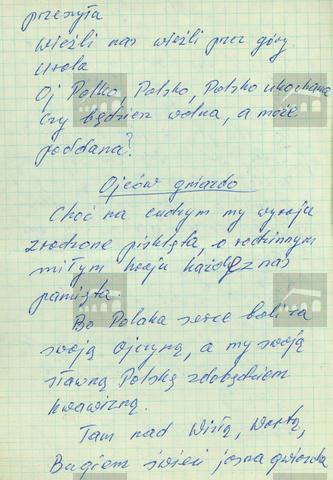 przesyła
wieźli nas wieźli przez góry
Urala
Oj Polko, Polsko, Polsko ukochana
czy będziesz wolna, a może
poddana?
Ojców gniazdo
Choć na cudzym my wyraju
zrodzone pisklęta, o rodzinnym
miłym kraju każdy z nas
pamięta.
Bo Polaka serce boli za
swoją Ojczyzną, a my swoją
sławną Polskę zdobędziem
krwawizną.
Tam nad Wisłą, Wartą,
Bugiem świeci jasna gwiazda